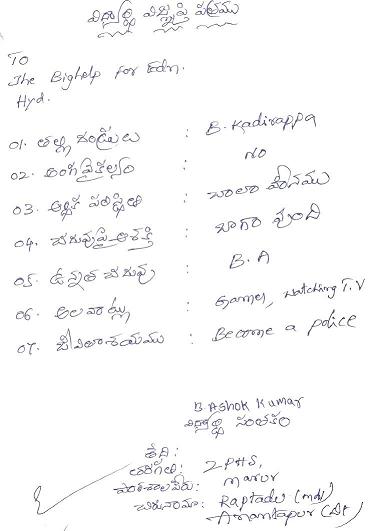 విద్యార్థి విజ్ఞప్తి పత్రము
To
The Bighelp for Edn.
Hyd.
01. తల్లి దండ్రులు : B. Kadirappa
02. అంగవైకల్యం : No
03. ఆర్థిక పరిస్థితి : చాలా హీనము
04. చదువుపై ఆసక్తి : బాగా వుంది
05. ఉన్నత చదువు : B.A
06. అలవాట్లు : Games, watching T.V
07. జీవితాశయము : Become a police
B. Ashok Kumar
విద్యార్థి సంతకం
తేది :
తరగతి :
పాఠశాల పేరు : ZPHS, Marur
చిరునామా : Raptadu (md)
Anantapur (Dt)